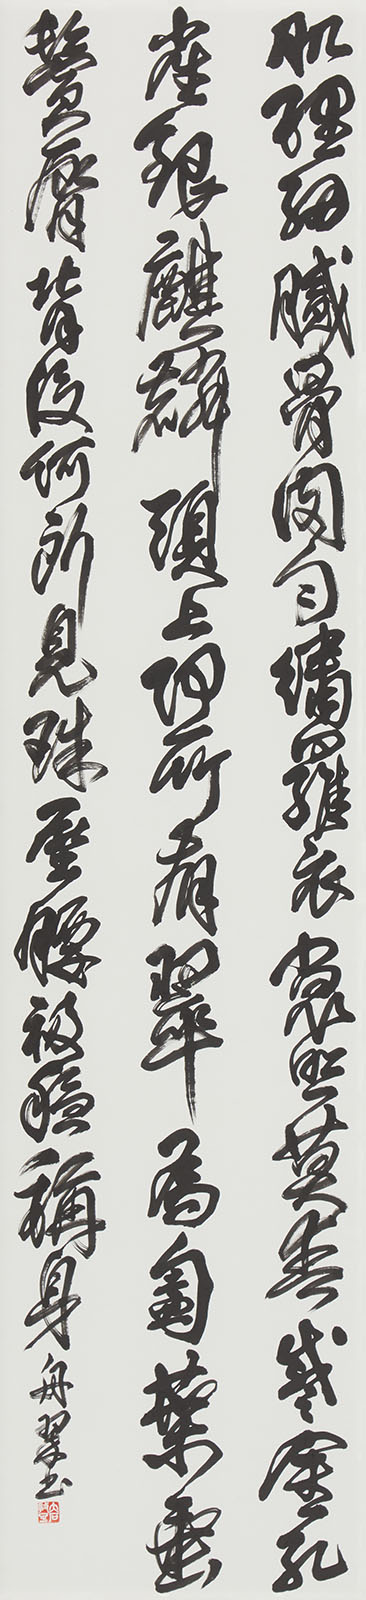 肌理細膩骨肉勻繡羅衣裳照莫春蹙金孔
雀銀麒麟頭上何所有翠為匎葉垂
鬢脣背後何所見珠壓腰衱穩稱身
舟翠書